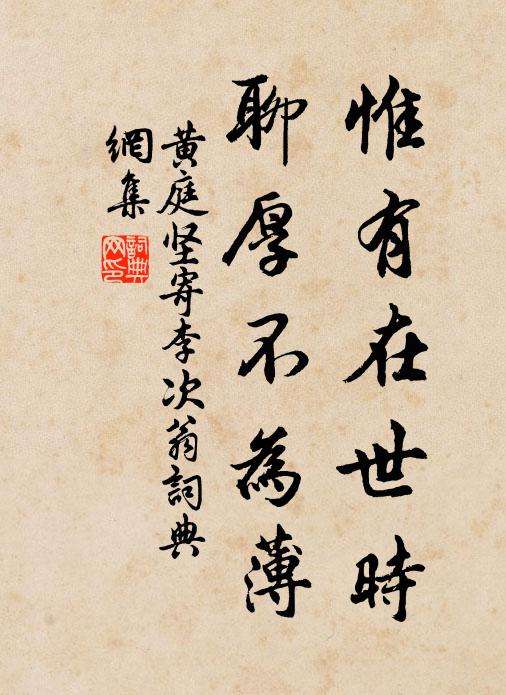 惟有在世時
聊厚不為薄
黄庭坚寄李次翁詞典
網集
詞典
网印